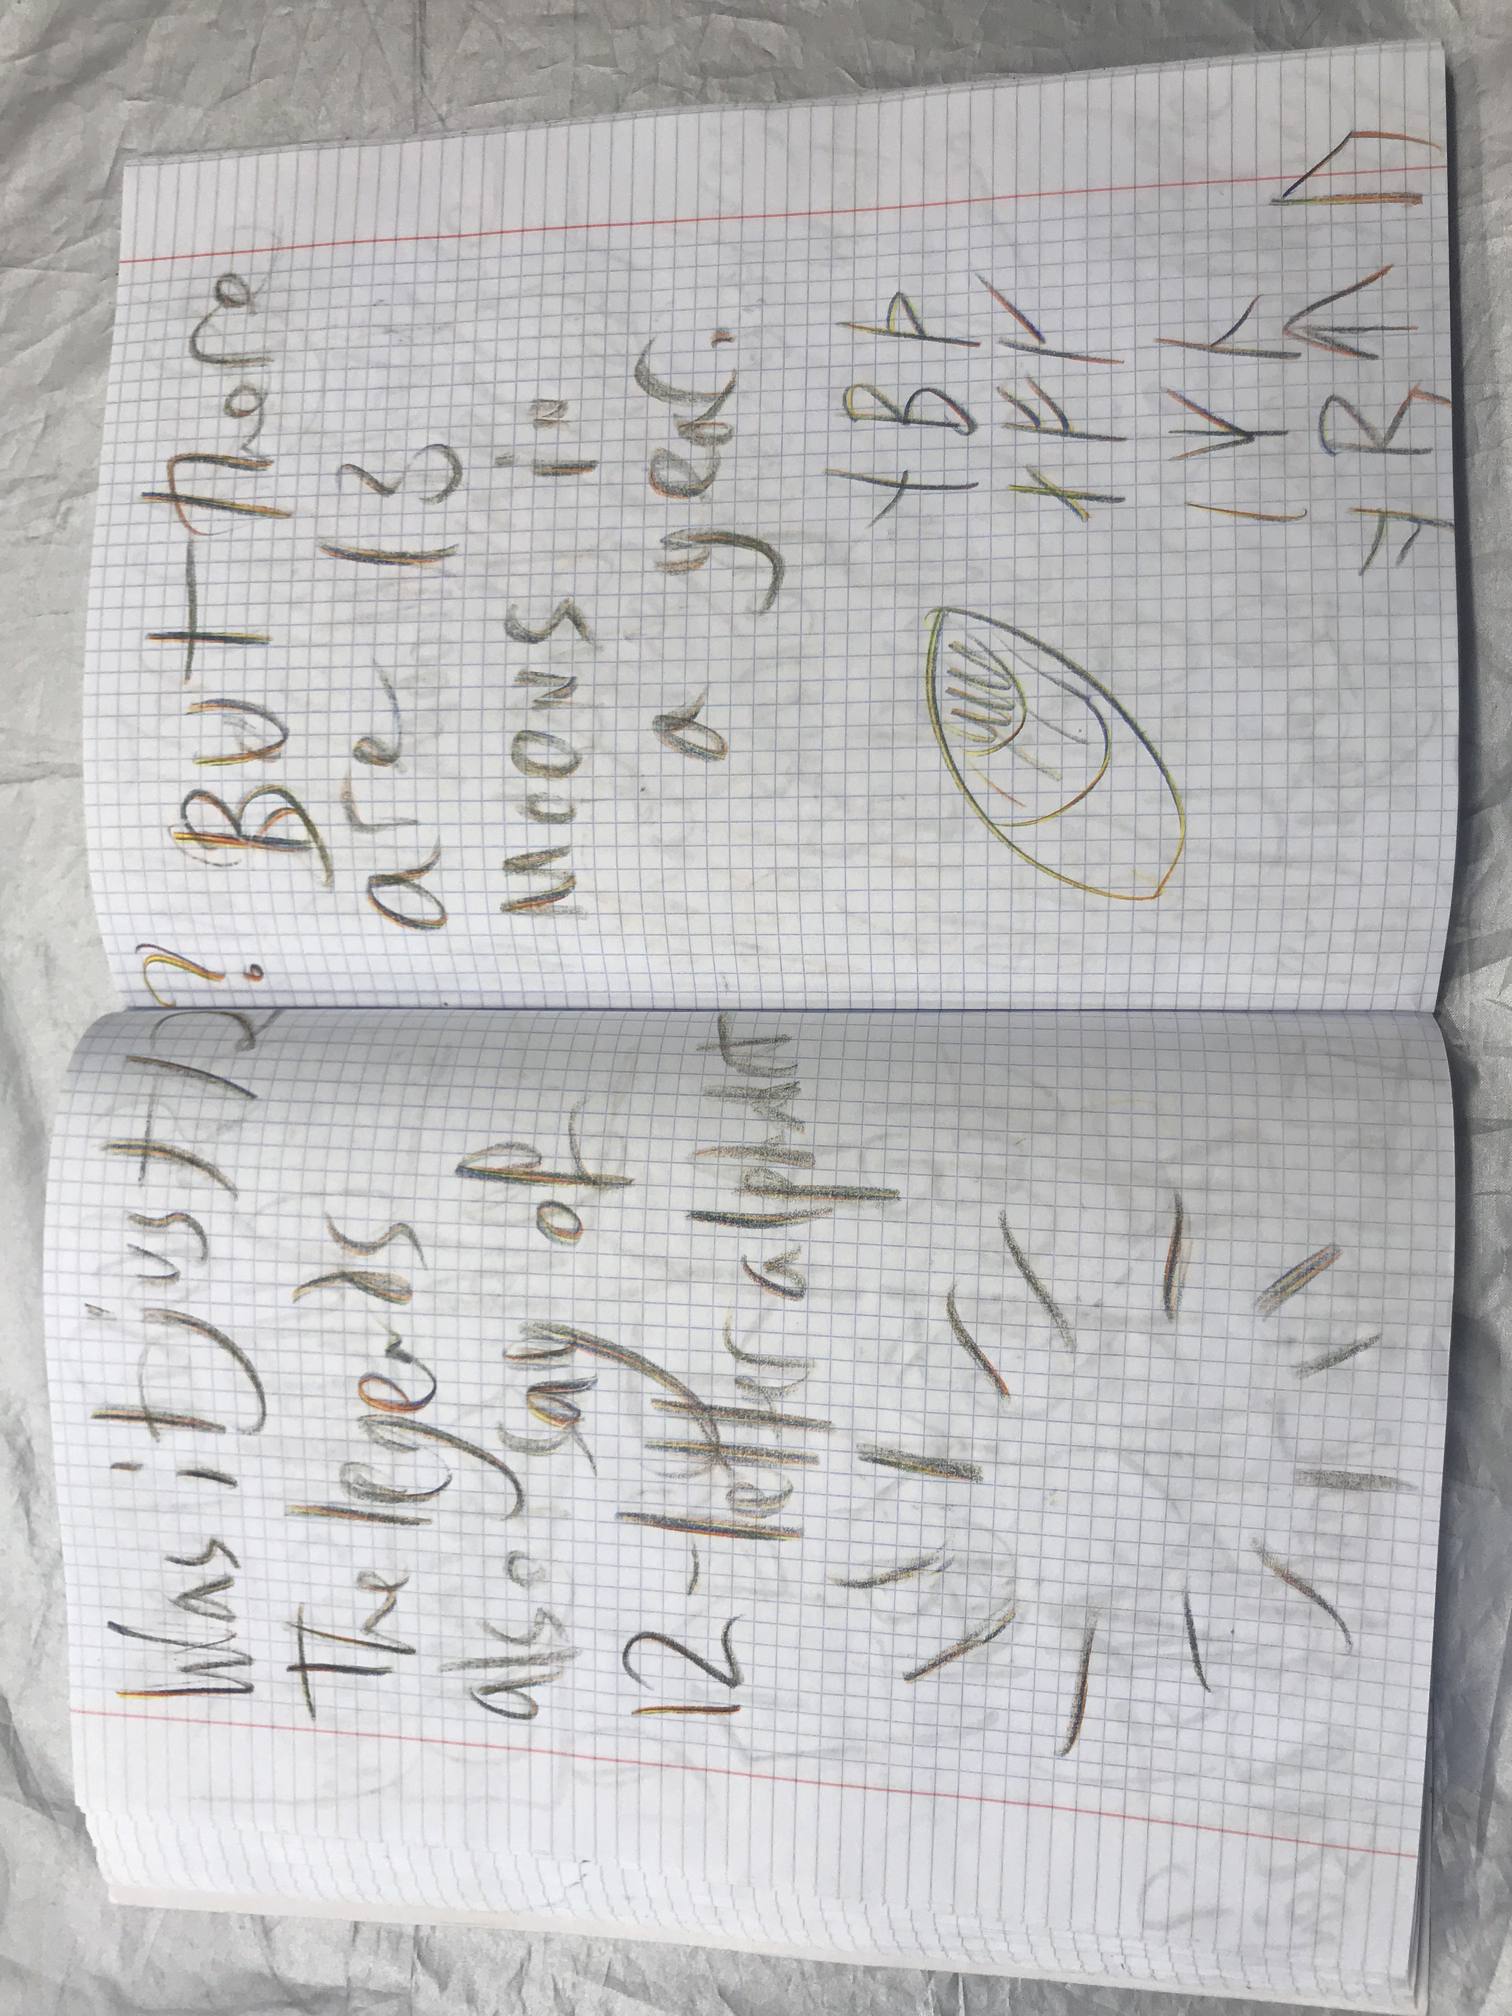 Was it just 12?
The legends
also say of
12-letter alphabet
But there
are 13
moons in
a year.
ᛒ ᚦ
ᚠ ᛚ
ᛁ ᛘ ᚴ
ᚱ ᛏ ᚢ